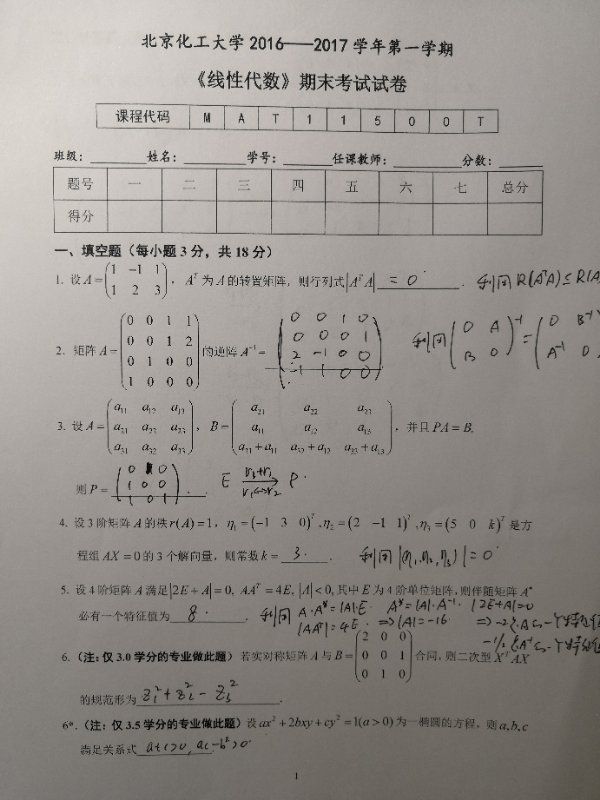 北京化工大学2016——2017学年第一学期
《线性代数》期末考试试卷
课程代码 M A T 1 1 5 0 0 T
班级： 姓名： 学号： 任课教师： 分数：
题号 一 二 三 四 五 六 七 总分
得分
一、填空题（每小题 3 分，共 18 分）
1. 设 A = (1 -1 1; 1 2 3)，A^T 为 A 的转置矩阵，则行列式 |A^T A| = 0 . 利用 R(A^TA) ≤ R(A
2. 矩阵 A = (0 0 1 1; 0 0 1 2; 0 1 0 0; 1 0 0 0) 的逆阵 A^-1 = (0 0 1 0; 0 0 0 1; 2 -1 0 0; -1 1 0 0) 利用 (0 A; B 0)^-1 = (0 B^-1; A^-1 0
3. 设 A = (a11 a12 a13; a21 a22 a23; a31 a32 a33)，B = (a21 a22 a23; a11 a12 a13; a31+a11 a32+a12 a33+a13)，并且 PA = B,
则 P = (0 1 0; 1 0 0; 1 0 1) . E r3+r1 r1↔r2 P.
4. 设 3 阶矩阵 A 的秩 r(A) = 1，η1 = (-1 3 0)^T, η2 = (2 -1 1)^T, η3 = (5 0 k)^T 是方
程组 AX = 0 的 3 个解向量，则常数 k = 3 . 利用 |(η1,η2,η3)| = 0
5. 设 4 阶矩阵 A 满足 |2E + A| = 0, AA^T = 4E, |A| < 0, 其中 E 为 4 阶单位矩阵, 则伴随矩阵 A*
必有一个特征值为 8 . 利用 A·A* = |A|·E A* = |A|·A^-1 |2E+A| = 0
|AA^T| = 4E ⇒ |A| = -16 ⇒ -2是A的一个特征值
-1/2是A^-1的一个特征值
6. （注：仅 3.0 学分的专业做此题）若实对称矩阵 A 与 B = (2 0 0; 0 0 1; 0 1 0) 合同，则二次型 X^T AX
的规范形为 z1^2 + z2^2 - z3^2 .
6*.（注：仅 3.5 学分的专业做此题）设 ax^2 + 2bxy + cy^2 = 1(a > 0) 为一椭圆的方程，则 a,b,c
满足关系式 a+c>0, ac-b^2>0 .
1